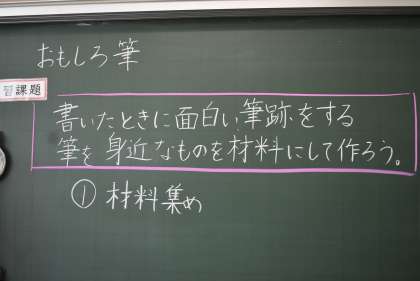 おもしろ筆
習課題
書いたときに面白い筆跡をする
筆を身近なものを材料にして作ろう。
① 材料集め